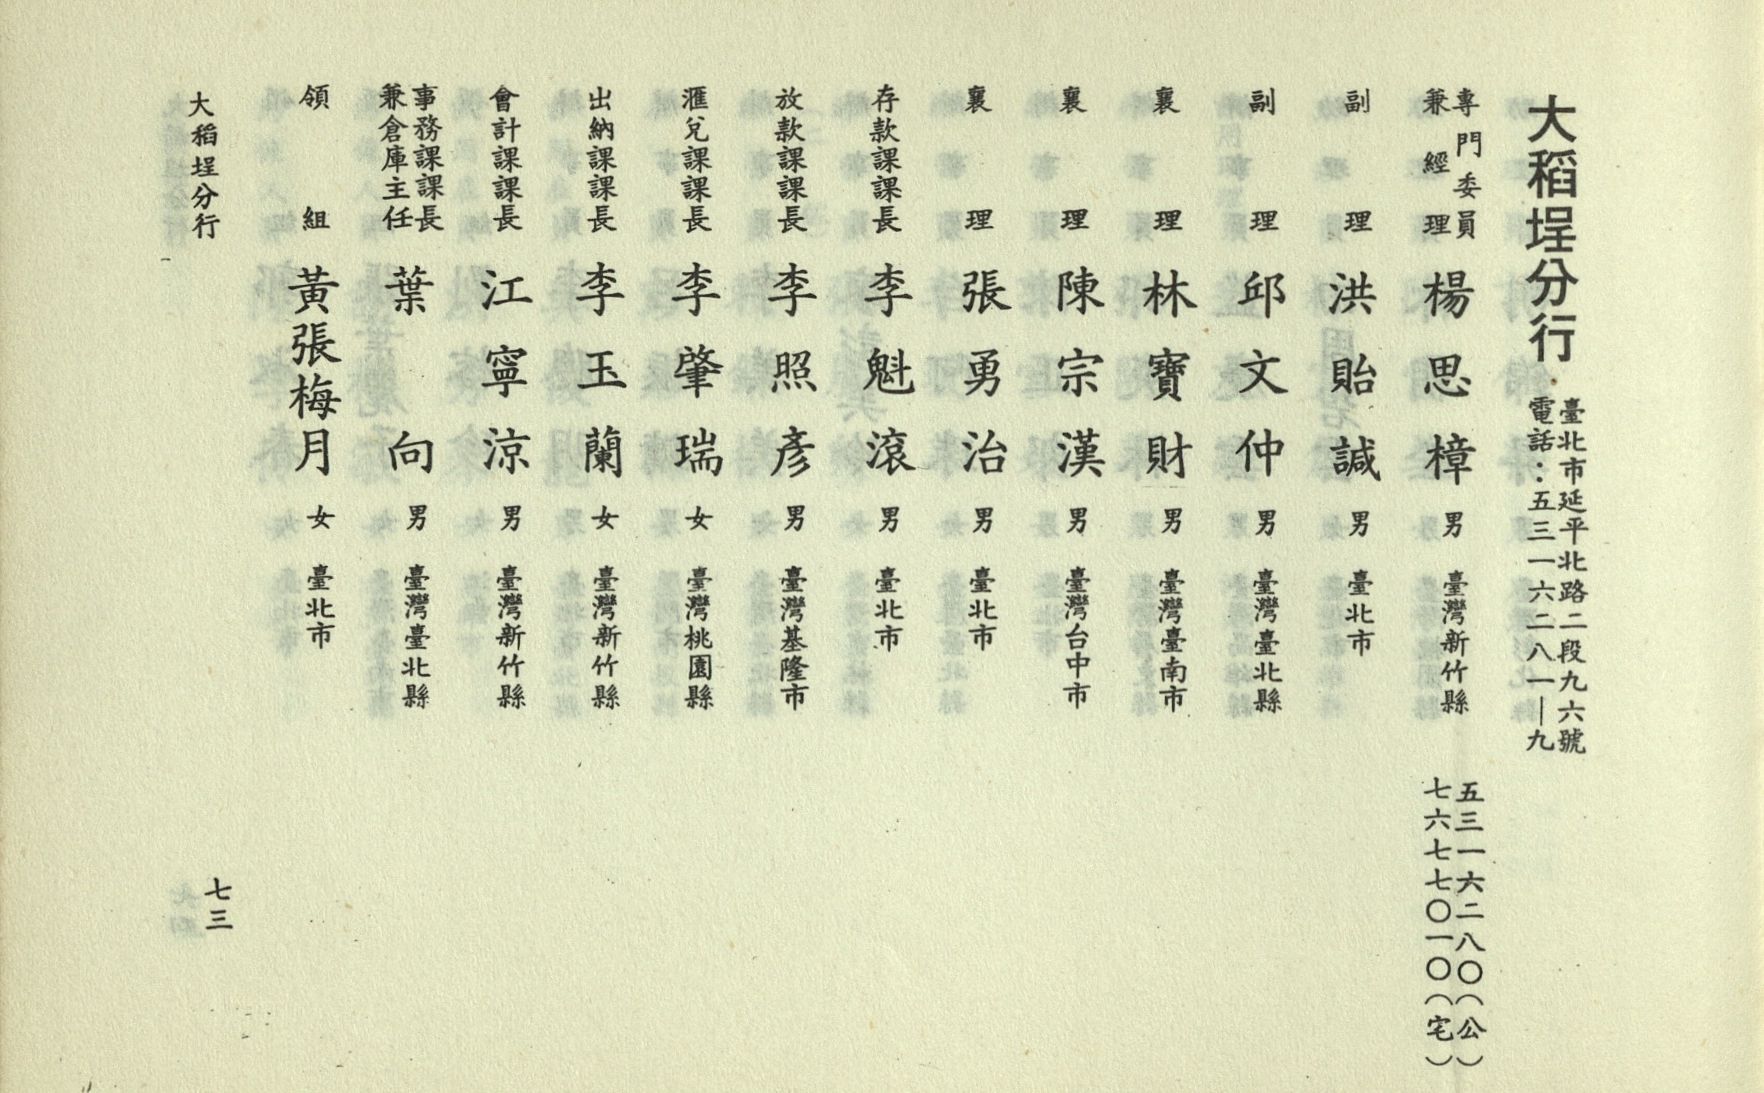 大稻埕分行
臺北市延平北路二段九六號
電話：五三一六二八一—九
專門委員
兼經理 楊思樟 男 臺灣新竹縣 五三一六二八〇（公）
七六七七〇一〇（宅）
副理 洪貽誠 男 臺北市
副理 邱文仲 男 臺灣臺北縣
襄理 林寶財 男 臺灣臺南市
襄理 陳宗漢 男 臺灣台中市
襄理 張勇治 男 臺北市
存款課課長 李魁滾 男 臺北市
放款課課長 李照彥 男 臺灣基隆市
滙兌課課長 李肇瑞 女 臺灣桃園縣
出納課課長 李玉蘭 女 臺灣新竹縣
會計課課長 江寧涼 男 臺灣新竹縣
事務課課長
兼倉庫主任 葉向 男 臺灣臺北縣
領組 黃張梅月 女 臺北市
大稻埕分行
七三